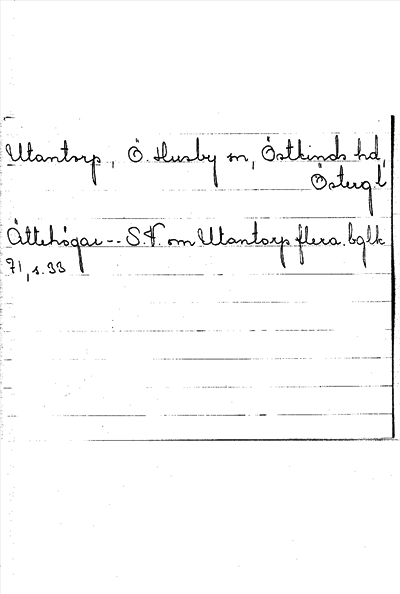 Utantorp, Ö. Husby sn, Östkinds hd,
Östergl
Ättehögar -- S.V. om Utantorp flera. bglk
71, s. 33